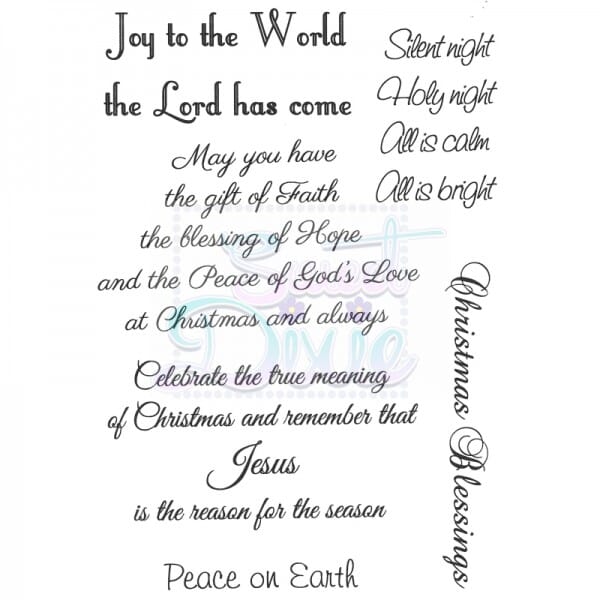 Joy to the World
the Lord has come
Silent night
Holy night
All is calm
All is bright
May you have
the gift of Faith
the blessing of Hope
and the Peace of God's Love
at Christmas and always
Celebrate the true meaning
of Christmas and remember that
Jesus
is the reason for the season
Peace on Earth
Christmas Blessings
Sweet
Dixie